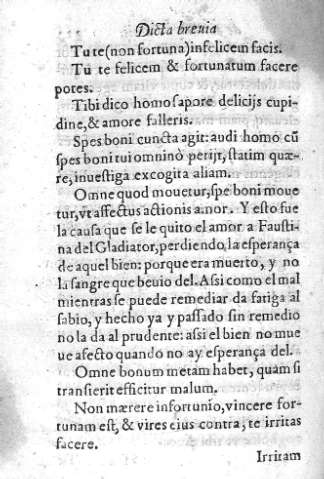 Dicta breuia
Tu te (non fortuna) infelicem facis.
Tu te felicem & fortunatum facere
potes.
Tibi dico homo sapore delicijs cupi-
dine, & amore falleris.
Spes boni cuncta agit: audi homo cũ
spes boni tui omninò perijt, statim quæ-
re, inuestiga excogita aliam.
Omne quod mouetur, spe boni moue
tur, vt affectus actionis amor. Y esto fue
la causa que se le quito el amor a Fausti-
na del Gladiator, perdiendo la esperança
de aquel bien: porque era muerto, y no
la sangre que beuio del. Assi como el mal
mientras se puede remediar da fatiga al
sabio, y hecho ya y passado sin remedio
no la da al prudente: assi el bien no mue
ue afecto quando no ay esperança del.
Omne bonum metam habet, quam si
transierit efficitur malum.
Non mærere infortunio, vincere for-
tunam est, & vires eius contra, te irritas
facere.
Irritam